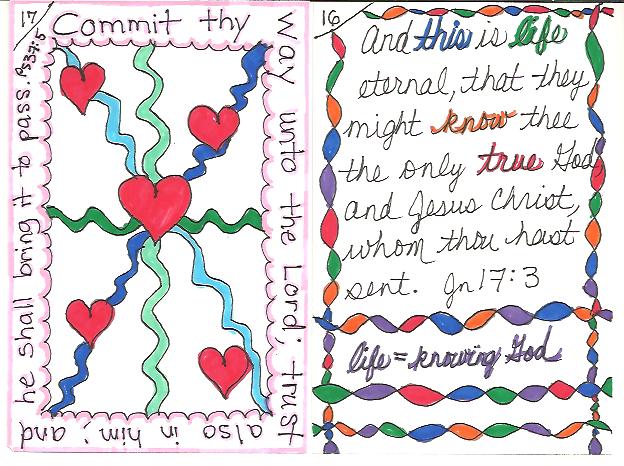 17
Commit thy
way unto the Lord; trust
also in him; and
he shall bring it to pass. Ps 37:5
16
And this is life
eternal, that they
might know thee
the only true God,
and Jesus Christ,
whom thou hast
sent. Jn 17:3
life = knowing God